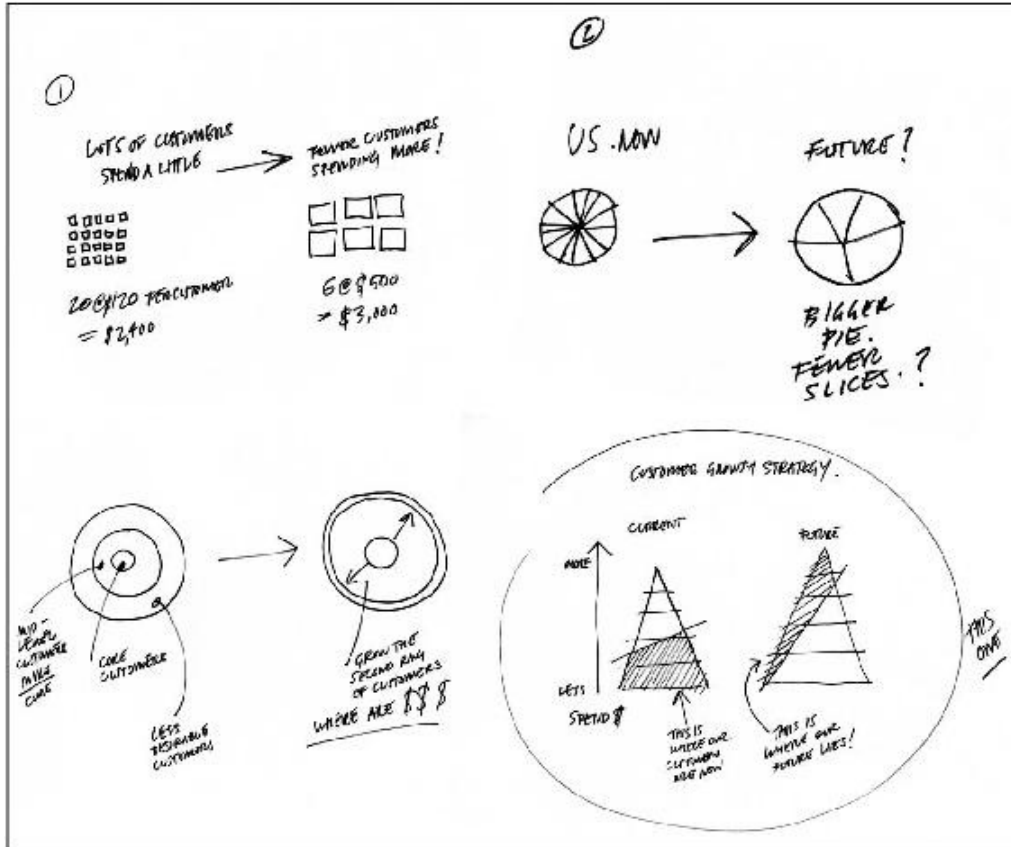 1
LOTS OF CUSTOMERS
SPEND A LITTLE
FEWER CUSTOMERS
SPENDING MORE!
20@$120 PER CUSTOMER
= $2,400
6@$500
= $3,000
2
US. NOW
FUTURE?
BIGGER
PIE.
FEWER
SLICES.?
MID-
LEVEL
CUSTOMERS
CORE
CORE
CUSTOMERS
LESS
DESIRABLE
CUSTOMERS
GROW THE
SECOND RING
OF CUSTOMERS
WHERE ARE $$$
CUSTOMER GROWTH STRATEGY.
CURRENT
FUTURE
MORE
LESS
SPEND $
THIS IS
WHERE OUR
CUSTOMERS
ARE NOW
THIS IS
WHERE OUR
FUTURE LIES!
THIS
ONE